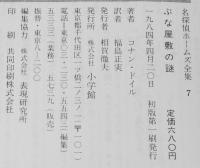 名探偵ホームズ全集 7
ぶな屋敷の謎
定価六八〇円
一九八四年四月二〇日 初版第一刷発行
著者 コナン・ドイル
訳者 福島正実
発行者 相賀徹夫
発行所 株式会社 小学館
東京都千代田区一ツ橋二ノ三ノ一 〒一〇一
電話=東京〇三・二三〇・五五四三(編集)
五三三三(業務) 五七三九(販売)
振替・東京八-二〇〇
編集協力 株式会社 表現研究所
印刷 共同印刷株式会社